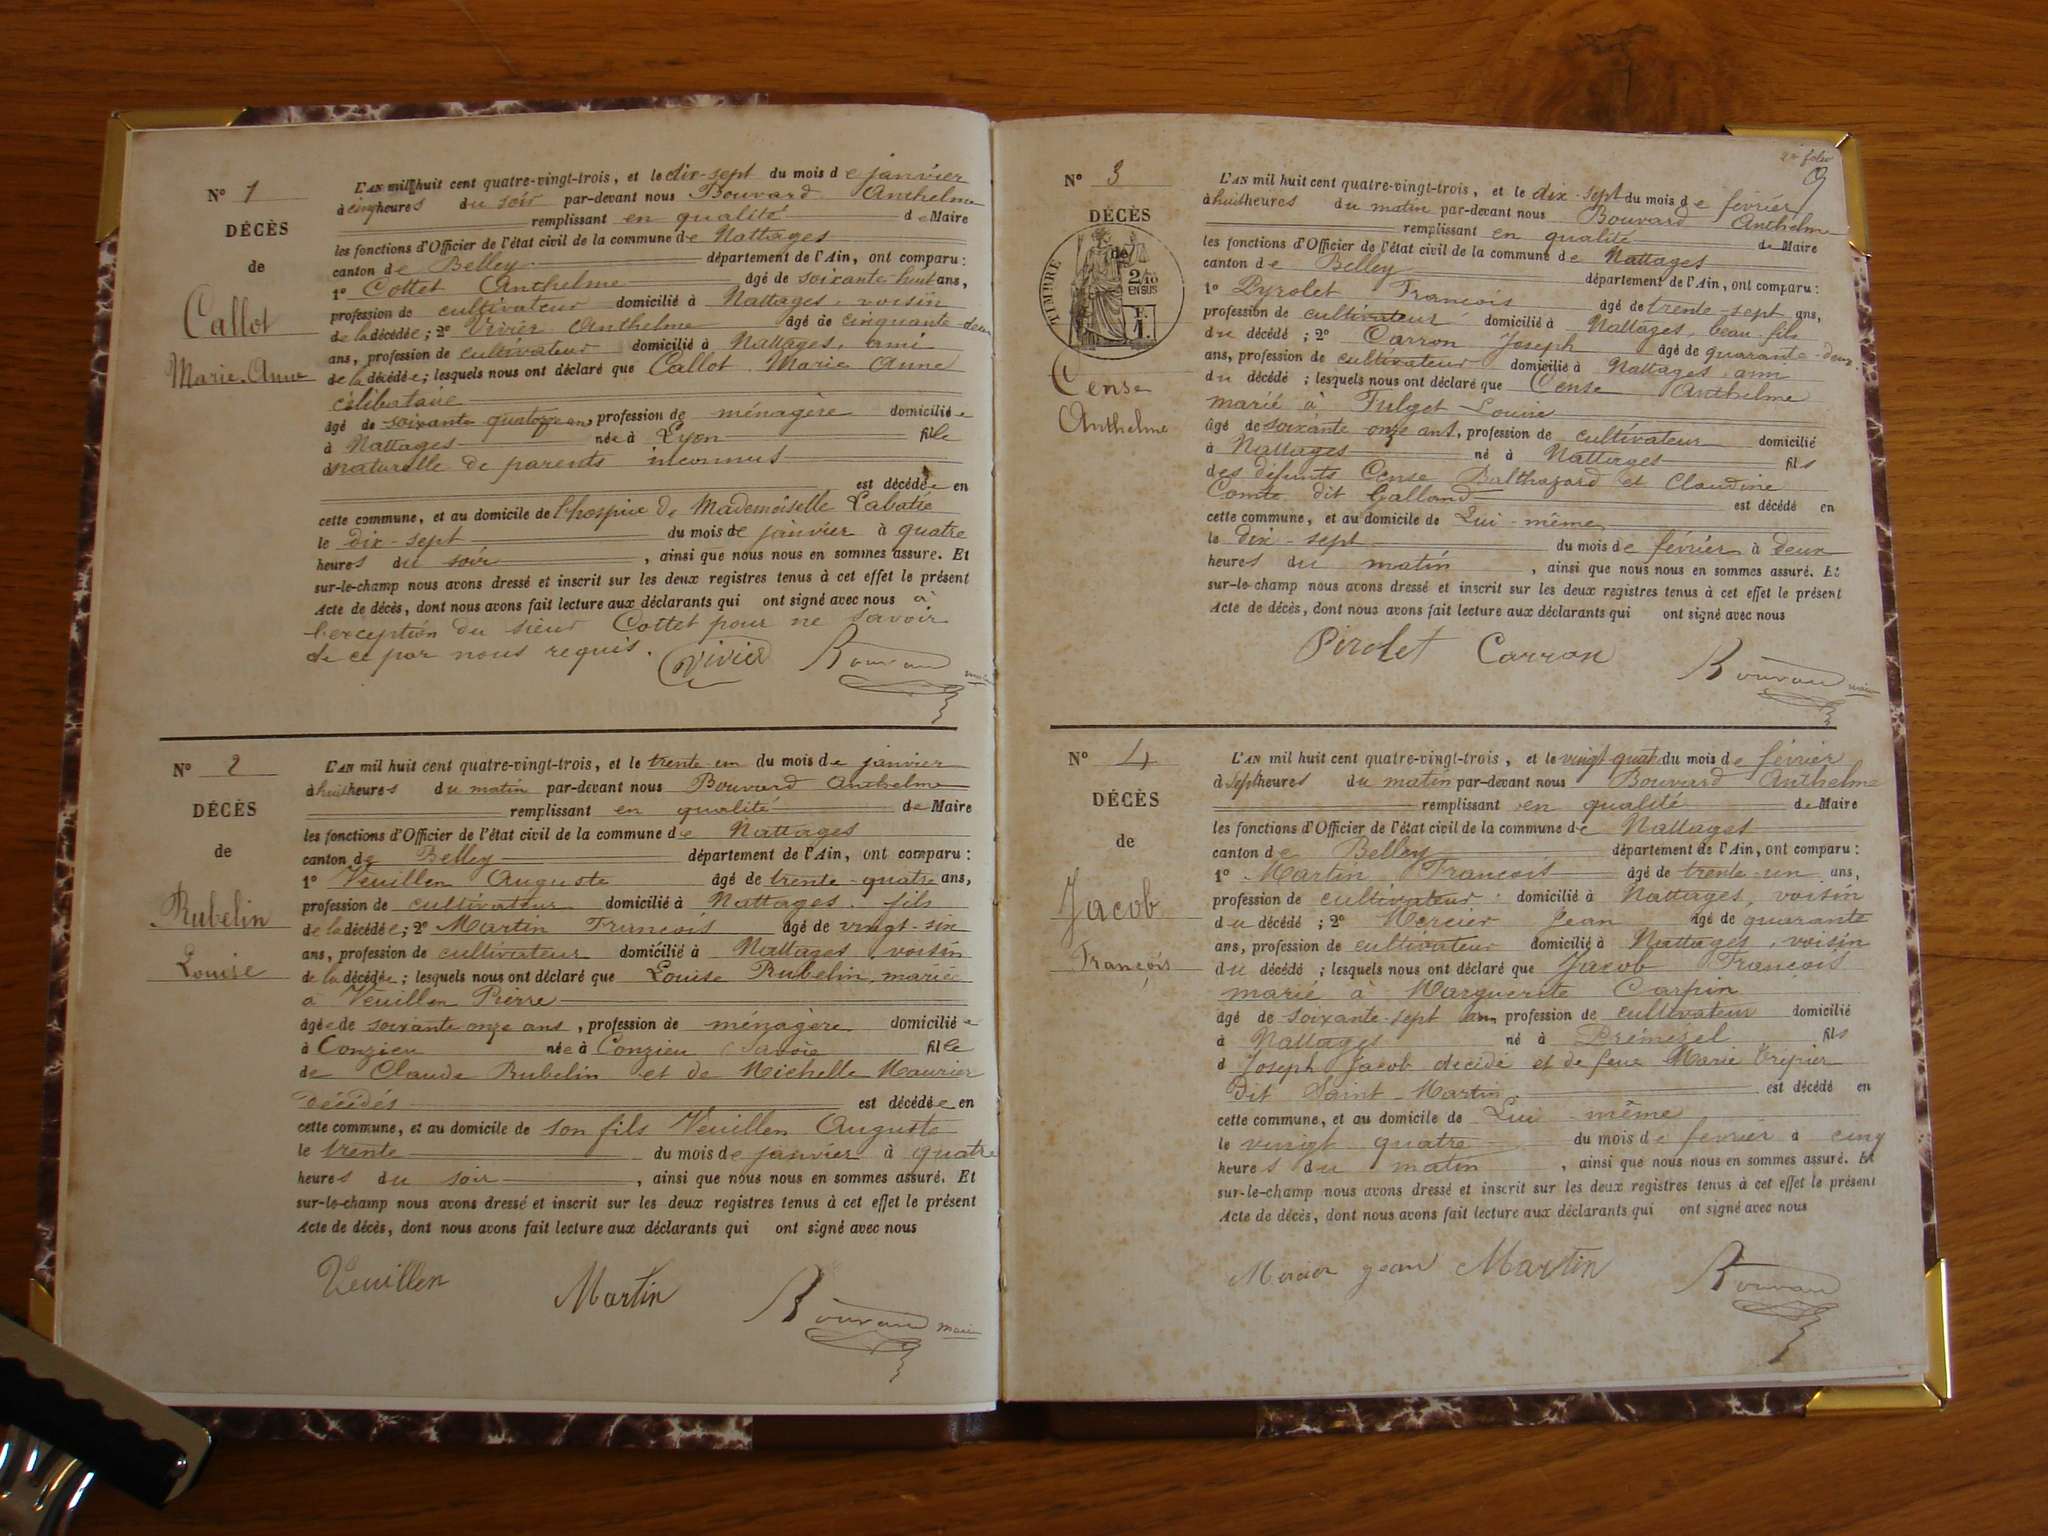 N° 1
DÉCÈS
de
Callot
Marie-Anne
L'AN mil huit cent quatre-vingt-trois, et le dix-sept du mois de janvier
à cinq heures du soir par-devant nous Bouvard Anthelme
remplissant en qualité de Maire
les fonctions d'Officier de l'état civil de la commune de Nattages
canton de Belley département de l'Ain, ont comparu :
1° Cottet Anthelme âgé de soixante-huit ans,
profession de cultivateur domicilié à Nattages, voisin
de la décédée ; 2° Vivier Anthelme âgé de cinquante-deux
ans, profession de cultivateur domicilié à Nattages, ami
de la décédée ; lesquels nous ont déclaré que Callot Marie Anne
célibataire
âgé de soixante quatorze ans, profession de ménagère domiciliée
à Nattages née à Lyon fille
naturelle de parents inconnus
est décédée en
cette commune, et au domicile de l'hospice de Mademoiselle Labatie
le dix-sept du mois de janvier à quatre
heures du soir, ainsi que nous nous en sommes assuré. Et
sur-le-champ nous avons dressé et inscrit sur les deux registres tenus à cet effet le présent
Acte de décès, dont nous avons fait lecture aux déclarants qui ont signé avec nous à
l'exception du sieur Cottet pour ne savoir
de ce par nous requis. Vivier Bouvard maire
N° 2
DÉCÈS
de
Rubelin
Louise
L'AN mil huit cent quatre-vingt-trois, et le trente-un du mois de janvier
à huit heures du matin par-devant nous Bouvard Anthelme
remplissant en qualité de Maire
les fonctions d'Officier de l'état civil de la commune de Nattages
canton de Belley département de l'Ain, ont comparu :
1° Veuillen Auguste âgé de trente-quatre ans,
profession de cultivateur domicilié à Nattages, fils
de la décédée ; 2° Martin François âgé de vingt-six
ans, profession de cultivateur domicilié à Nattages, voisin
de la décédée ; lesquels nous ont déclaré que Louise Rubelin, mariée
à Veuillen Pierre
âgée de soixante onze ans, profession de ménagère domiciliée
à Conzieu née à Conzieu (Savoie fille
de Claude Rubelin et de Michelle Maurier
décédés est décédée en
cette commune, et au domicile de son fils Veuillen Auguste
le trente du mois de janvier à quatre
heures du soir, ainsi que nous nous en sommes assuré. Et
sur-le-champ nous avons dressé et inscrit sur les deux registres tenus à cet effet le présent
Acte de décès, dont nous avons fait lecture aux déclarants qui ont signé avec nous
Veuillen Martin Bouvard maire
2e folio
N° 3
DÉCÈS
de
TIMBRE
2/10
EN SUS
Cense
Anthelme
L'AN mil huit cent quatre-vingt-trois, et le dix-sept du mois de février
à huit heures du matin par-devant nous Bouvard Anthelme
remplissant en qualité de Maire
les fonctions d'Officier de l'état civil de la commune de Nattages
canton de Belley département de l'Ain, ont comparu :
1° Pyrolet François âgé de trente-sept ans,
profession de cultivateur domicilié à Nattages, beau fils
du décédé ; 2° Carron Joseph âgé de quarante-deux
ans, profession de cultivateur domicilié à Nattages, ami
du décédé ; lesquels nous ont déclaré que Cense Anthelme
marié à Fulget Louise
âgé de soixante onze ans, profession de cultivateur domicilié
à Nattages né à Nattages fils
des défunts Cense Balthazard et Claudine
Comte dit Galland est décédé en
cette commune, et au domicile de Lui-même
le dix-sept du mois de février à deux
heures du matin, ainsi que nous nous en sommes assuré. Et
sur-le-champ nous avons dressé et inscrit sur les deux registres tenus à cet effet le présent
Acte de décès, dont nous avons fait lecture aux déclarants qui ont signé avec nous
Pirolet Carron Bouvard maire
N° 4
DÉCÈS
de
Jacob
François
L'AN mil huit cent quatre-vingt-trois, et le vingt-quatre du mois de février
à sept heures du matin par-devant nous Bouvard Anthelme
remplissant en qualité de Maire
les fonctions d'Officier de l'état civil de la commune de Nattages
canton de Belley département de l'Ain, ont comparu :
1° Martin François âgé de trente-un ans,
profession de cultivateur domicilié à Nattages, voisin
du décédé ; 2° Mercier Jean âgé de quarante
ans, profession de cultivateur domicilié à Nattages, voisin
du décédé ; lesquels nous ont déclaré que Jacob François
marié à Marguerite Carpin
âgé de soixante-sept ans profession de cultivateur domicilié
à Nattages né à Prémézel fils
d Joseph Jacob décédé et de feue Marie Tripier
Dit Saint-Martin est décédé en
cette commune, et au domicile de Lui-même
le vingt quatre du mois de février à cinq
heures du matin, ainsi que nous nous en sommes assuré. Et
sur-le-champ nous avons dressé et inscrit sur les deux registres tenus à cet effet le présent
Acte de décès, dont nous avons fait lecture aux déclarants qui ont signé avec nous
Mercier jean Martin Bouvard